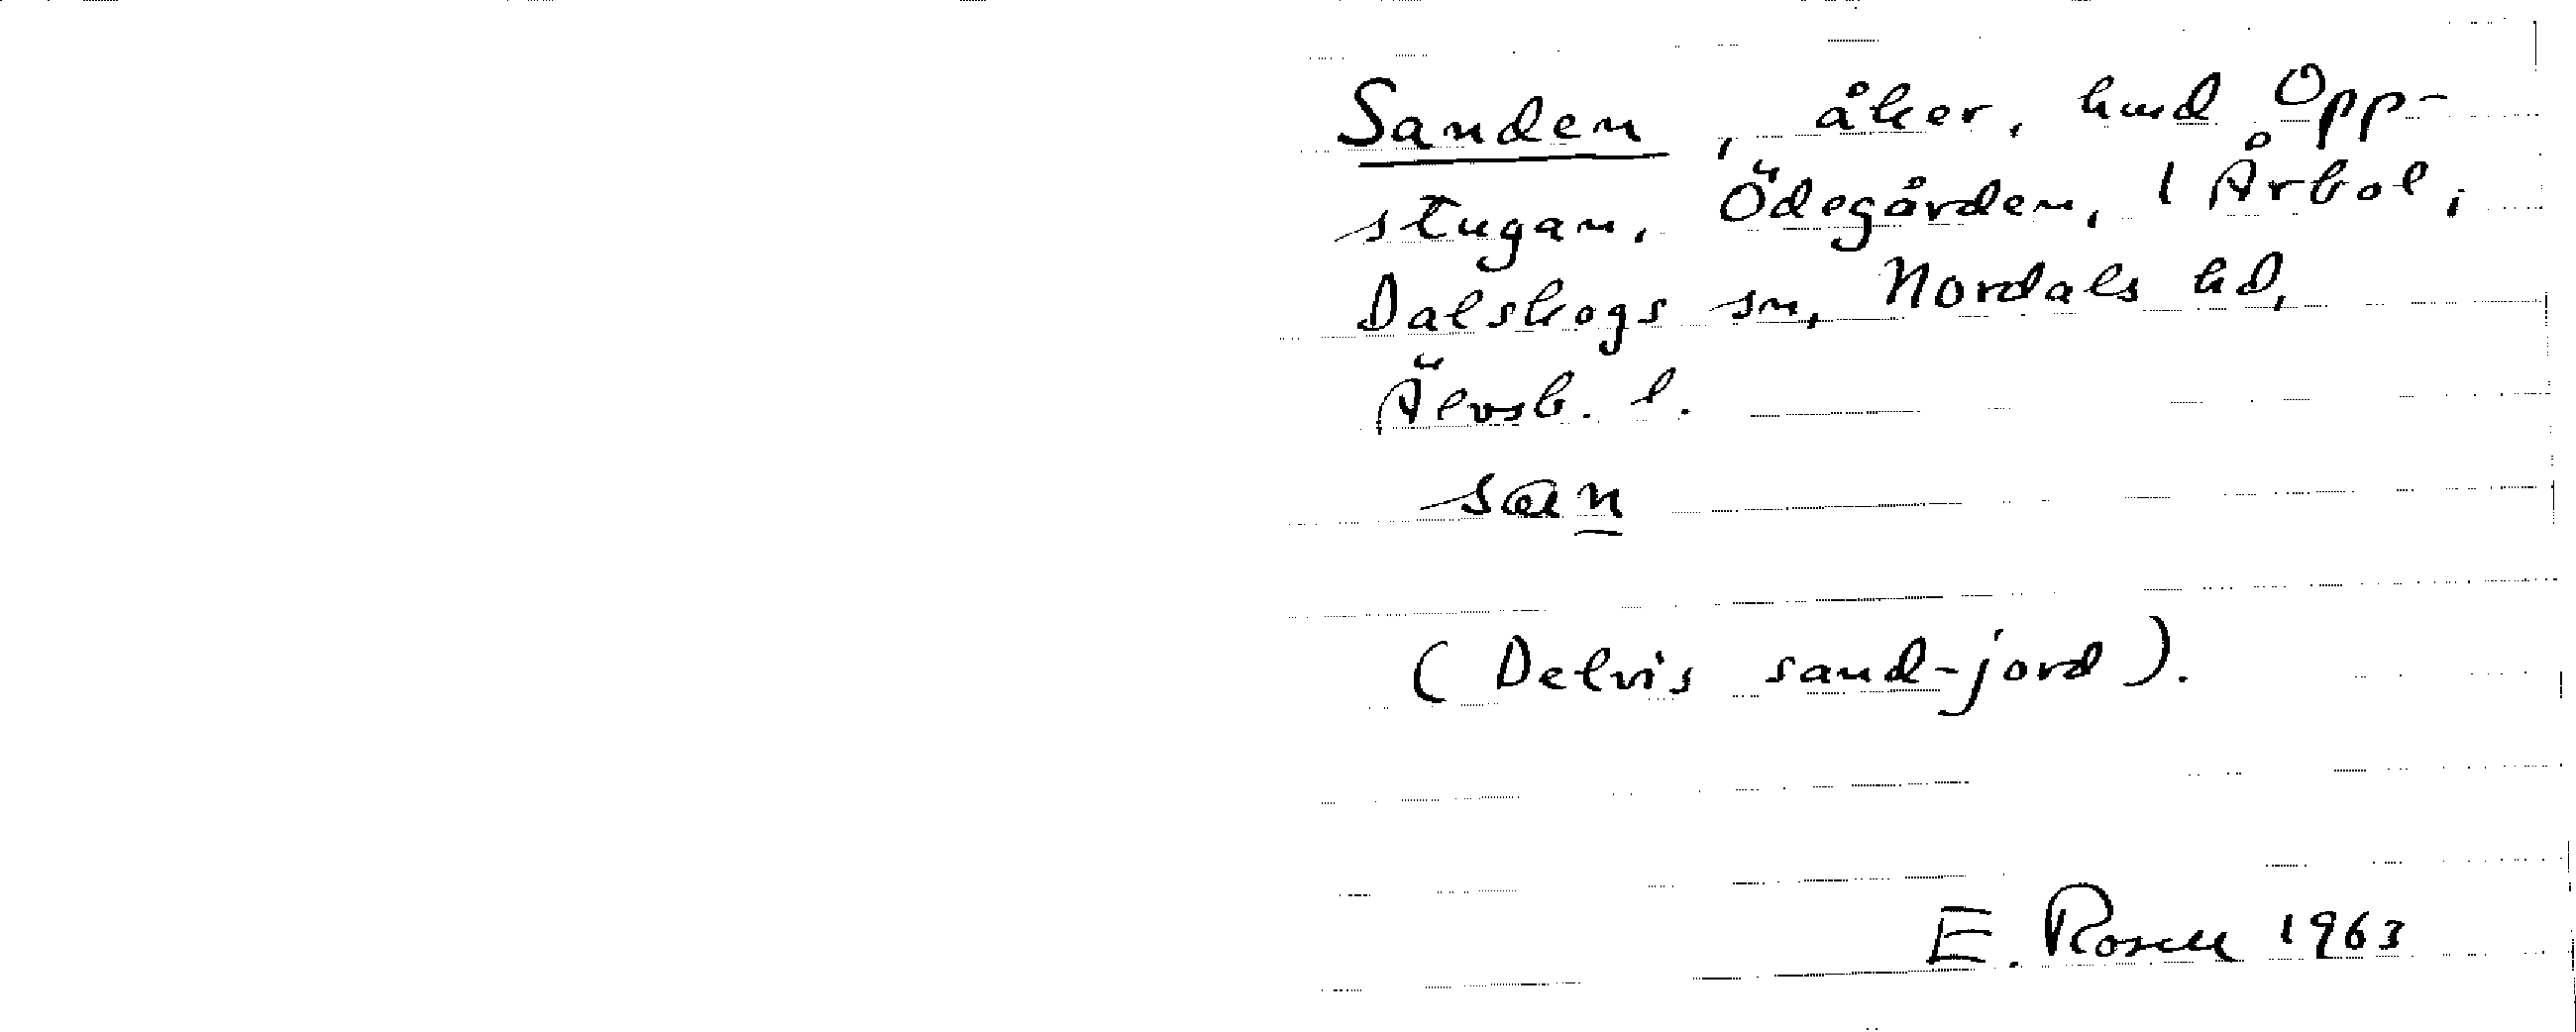 Sanden, åker, hmd Opp-
stugan, Ödegården, 1 Årbol,
Dalskogs sn, Nordals hd,
Älvsb. l.
san
(Delvis sand-jord).
E. Rosell 1963